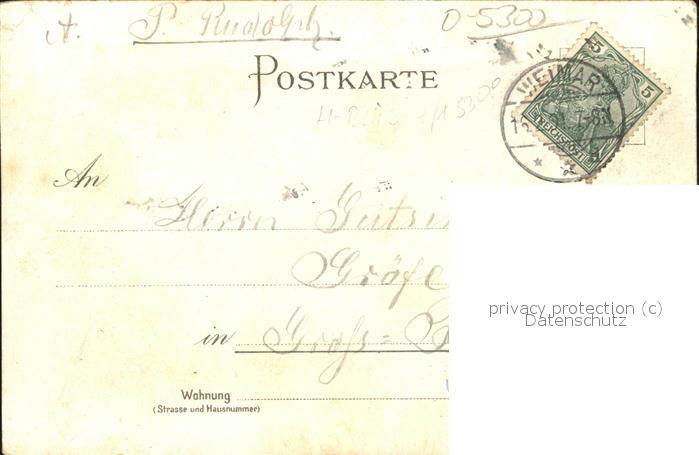 A. P. Rudolph. D-5300
POSTKARTE
5 5
REICHSPOST
WEIMAR
7-8N
5300
An
Herrn
Gräfe
in Groß=
Wohnung
(Strasse und Hausnummer)
privacy protection (c)
Datenschutz